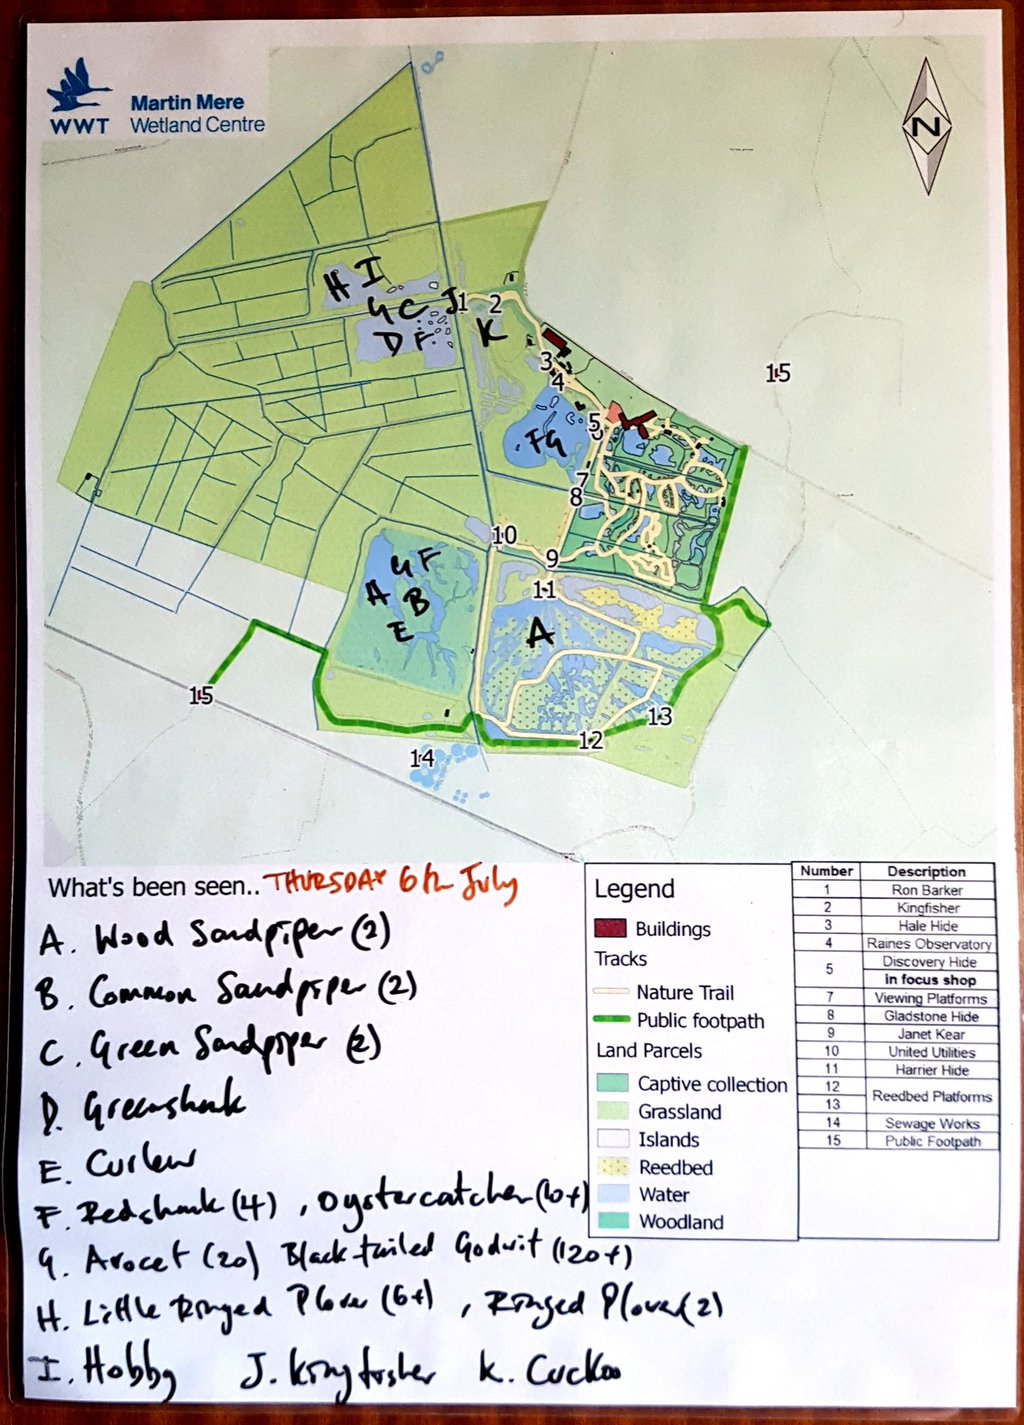 WWT
Martin Mere
Wetland Centre
N
H I
G C J 1 2
D F K
3
4
15
5
6
F G
7
8
10
9
G F
A B
E
11
A
15
13
12
14
What's been seen.. THURSDAY 6th July
A. Wood Sandpiper (2)
B. Common Sandpiper (2)
C. Green Sandpiper (2)
D. Greenshank
E. Curlew
F. Redshank (4), Oystercatcher (10+)
G. Avocet (20) Black tailed Godwit (120+)
H. Little Ringed Plover (6+), Ringed Plover (2)
I. Hobby J. Kingfisher K. Cuckoo
Legend
Buildings
Tracks
Nature Trail
Public footpath
Land Parcels
Captive collection
Grassland
Islands
Reedbed
Water
Woodland
Number Description
1 Ron Barker
2 Kingfisher
3 Hale Hide
4 Raines Observatory
5 Discovery Hide
in focus shop
7 Viewing Platforms
8 Gladstone Hide
9 Janet Kear
10 United Utilities
11 Harrier Hide
12
13 Reedbed Platforms
14 Sewage Works
15 Public Footpath